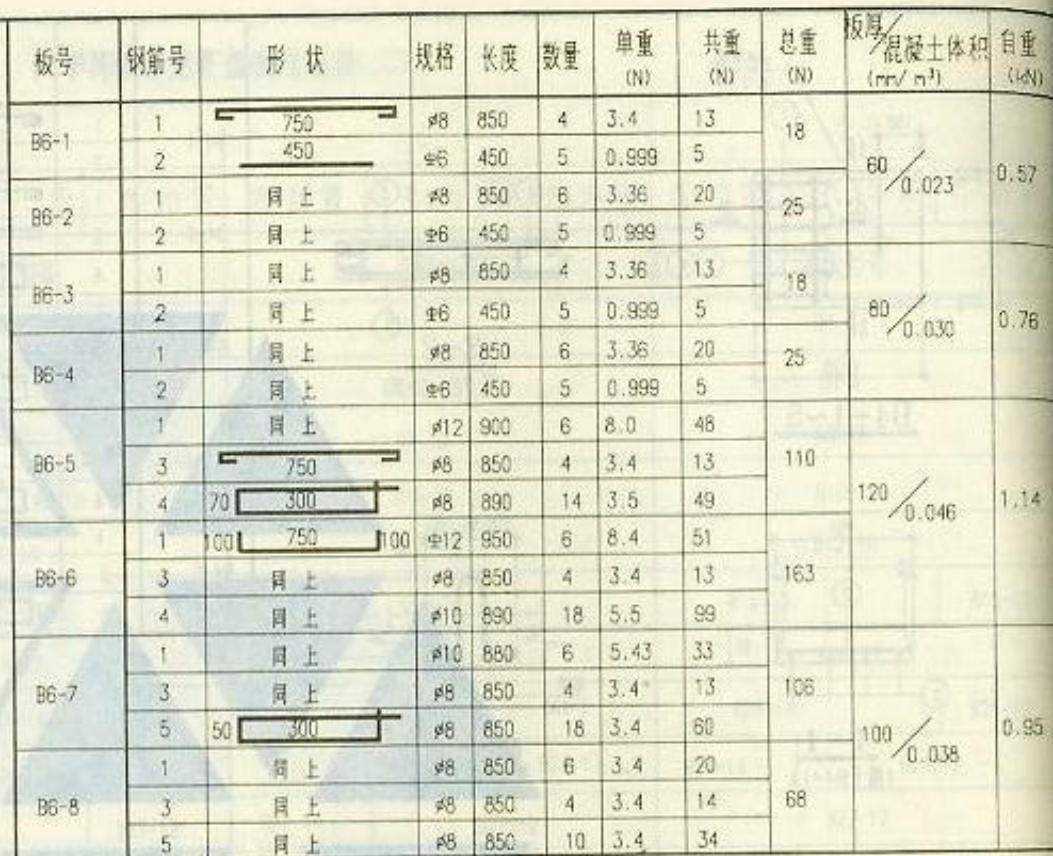 板号 钢筋号 形状 规格 长度 数量 单重(N) 共重(N) 总重(N) 板厚/混凝土体积(mm/m³) 自重(kN)
B6-1 1 750 ⌀8 850 4 3.4 13 18 60/0.023 0.57
2 450 Φ6 450 5 0.999 5
B6-2 1 同上 ⌀8 850 6 3.36 20 25
2 同上 Φ6 450 5 0.999 5
B6-3 1 同上 ⌀8 850 4 3.36 13 18 80/0.030 0.76
2 同上 Φ6 450 5 0.999 5
B6-4 1 同上 ⌀8 850 6 3.36 20 25
2 同上 Φ6 450 5 0.999 5
B6-5 1 同上 ⌀12 900 6 8.0 48 110 120/0.046 1.14
3 750 ⌀8 850 4 3.4 13
4 70 300 ⌀8 890 14 3.5 49
B6-6 1 100 750 100 Φ12 950 6 8.4 51 163
3 同上 ⌀8 850 4 3.4 13
4 同上 ⌀10 890 18 5.5 99
B6-7 1 同上 ⌀10 880 6 5.43 33 106 100/0.038 0.95
3 同上 ⌀8 850 4 3.4 13
5 50 300 ⌀8 850 18 3.4 60
B6-8 1 同上 ⌀8 850 6 3.4 20 68
3 同上 ⌀8 850 4 3.4 14
5 同上 ⌀8 850 10 3.4 34